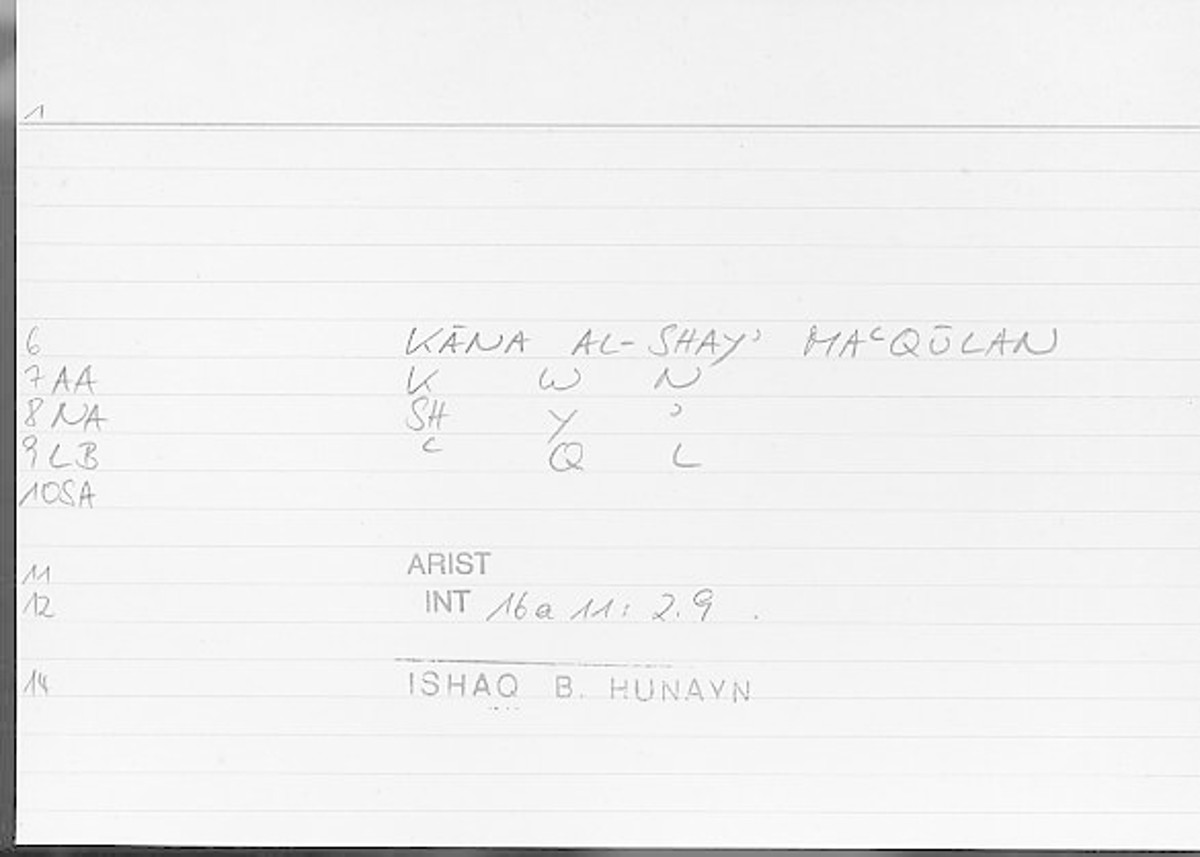 1
6 KĀNA AL-SHAYʾ MAʿQŪLAN
7 AA K W N
8 NA SH Y ʾ
9 LB ʿ Q L
10 SA
11 ARIST
12 INT 16a 11: 2.9 .
14 ISHAQ B. HUNAYN